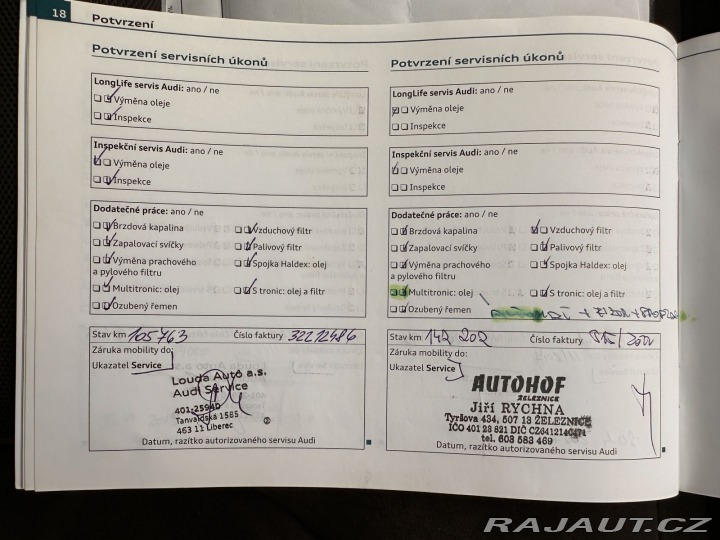 18 Potvrzení
Potvrzení servisních úkonů
LongLife servis Audi: ano / ne
Výměna oleje
Inspekce
Inspekční servis Audi: ano / ne
Výměna oleje
Inspekce
Dodatečné práce: ano / ne
Brzdová kapalina
Vzduchový filtr
Zapalovací svíčky
Palivový filtr
Výměna prachového
a pylového filtru
Spojka Haldex: olej
Multitronic: olej
S tronic: olej a filtr
Ozubený řemen
Stav km 105763 Číslo faktury 32212486
Záruka mobility do:
Ukazatel Service
Louda Auto a.s.
Audi Service
401-25940
Tanvaldská 1585
463 11 Liberec
Datum, razítko autorizovaného servisu Audi
Potvrzení servisních úkonů
LongLife servis Audi: ano / ne
Výměna oleje
Inspekce
Inspekční servis Audi: ano / ne
Výměna oleje
Inspekce
Dodatečné práce: ano / ne
Brzdová kapalina
Vzduchový filtr
Zapalovací svíčky
Palivový filtr
Výměna prachového
a pylového filtru
Spojka Haldex: olej
Multitronic: olej
S tronic: olej a filtr
Ozubený řemen
Stav km 142 202 Číslo faktury
Záruka mobility do:
Ukazatel Service
AUTOHOF
ŽELEZNICE
Jiří RYCHNA
Tyršova 434, 507 13 ŽELEZNICE
IČO 401 23 821 DIČ
tel. 603 583 469
Datum, razítko autorizovaného servisu Audi
RAJAUT.CZ